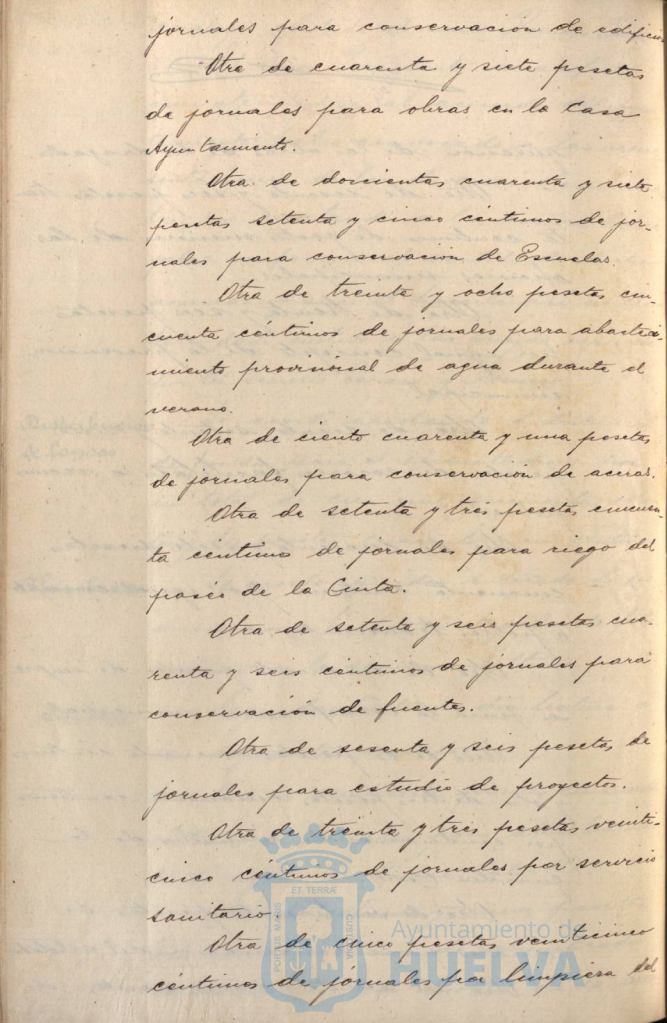 jornales para conservación de edificios
Otra de cuarenta y siete pesetas
de jornales para obras en la Casa
Ayuntamiento.
Otra de doscientas cuarenta y siete
pesetas setenta y cinco céntimos de jor-
nales para conservación de Escuelas.
Otra de treinta y ocho pesetas cin-
cuenta céntimos de jornales para abasteci-
miento provisional de agua durante el
verano.
Otra de ciento cuarenta y una pesetas
de jornales para conservación de aceras.
Otra de setenta y tres pesetas cincuen-
ta céntimos de jornales para riego del
paseo de la Cinta.
Otra de setenta y seis pesetas cua-
renta y seis céntimos de jornales para
conservación de fuentes.
Otra de sesenta y seis pesetas de
jornales para estudio de proyectos.
Otra de treinta y tres pesetas veinti-
cinco céntimos de jornales por servicio
sanitario.
Otra de cinco pesetas veinticinco
céntimos de jornales por limpieza del
ET TERRÆ
PORTUS MARIS
CUSTODIA
Ayuntamiento de
HUELVA